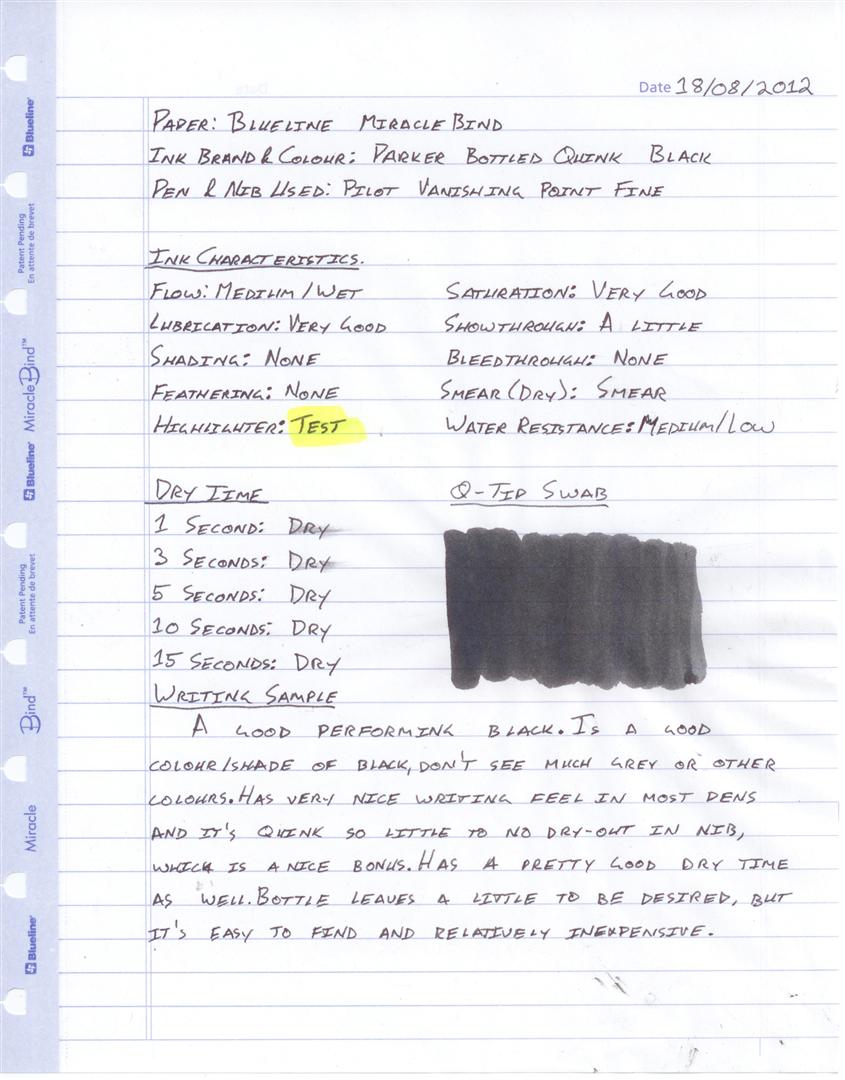 Date 18/08/2012
PAPER: BLUELINE MIRACLEBIND
INK BRAND & COLOUR: PARKER BOTTLED QUINK BLACK
PEN & NIB USED: PILOT VANISHING POINT FINE
INK CHARACTERISTICS.
FLOW: MEDIUM/WET SATURATION: VERY GOOD
LUBRICATION: VERY GOOD SHOWTHROUGH: A LITTLE
SHADING: NONE BLEEDTHROUGH: NONE
FEATHERING: NONE SMEAR (DRY): SMEAR
HIGHLIGHTER: TEST WATER RESISTANCE: MEDIUM/LOW
DRY TIME Q-TIP SWAB
1 SECOND: DRY
3 SECONDS: DRY
5 SECONDS: DRY
10 SECONDS: DRY
15 SECONDS: DRY
WRITING SAMPLE
A GOOD PERFORMING BLACK. IS A GOOD
COLOUR/SHADE OF BLACK, DON'T SEE MUCH GREY OR OTHER
COLOURS. HAS VERY NICE WRITING FEEL IN MOST PENS
AND IT'S QUINK SO LITTLE TO NO DRY-OUT IN NIB,
WHICH IS A NICE BONUS. HAS A PRETTY GOOD DRY TIME
AS WELL. BOTTLE LEAVES A LITTLE TO BE DESIRED, BUT
IT'S EASY TO FIND AND RELATIVELY INEXPENSIVE.
Blueline®
Patent Pending
En attente de brevet
Blueline® MiracleBind™
Patent Pending
En attente de brevet
Bind™
Miracle
Blueline®